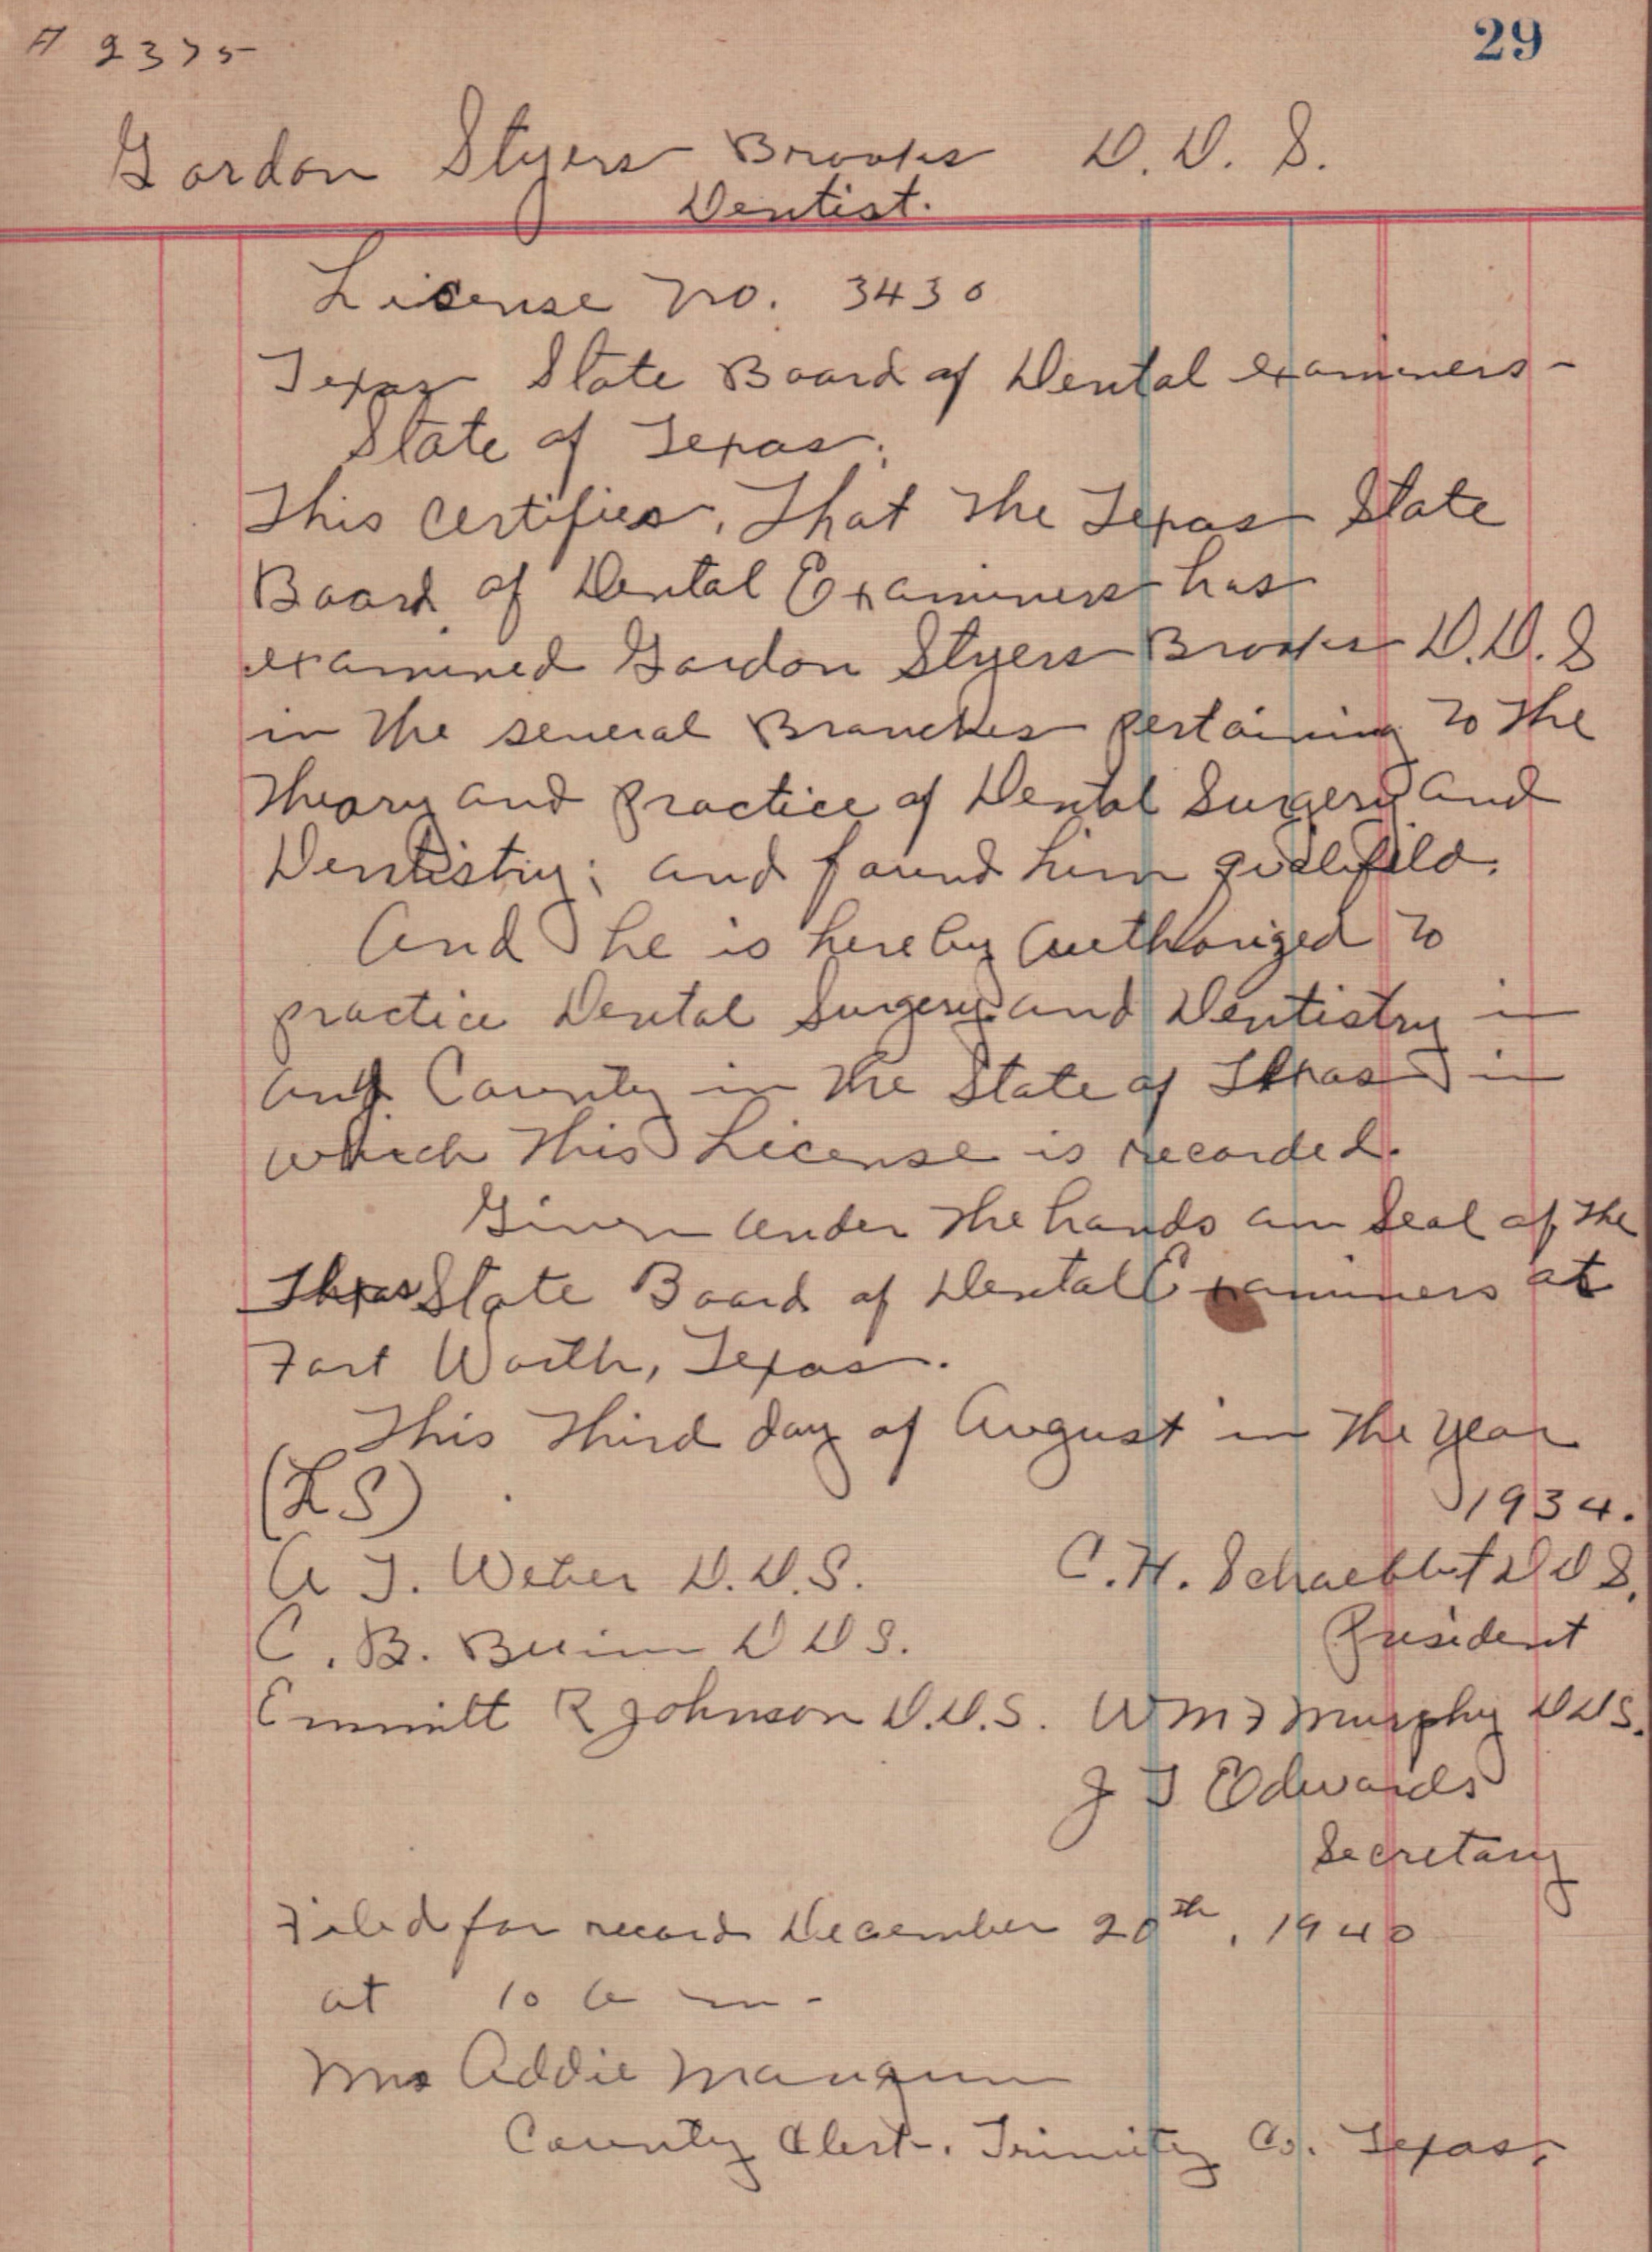 # 2375
29
Gordon Styers Brooks D.D.S.
Dentist.
License No. 3430
Texas State Board of Dental examiners -
State of Texas.
This certifies, That the Texas State
Board of Dental Examiners has
examined Gordon Styers Brooks D.D.S
in the several Branches pertaining to the
Theory and practice of Dental Surgery and
Dentistry; and found him
And he is hereby authorized to
practice Dental Surgery and Dentistry in
any County in the State of Texas in
which this License is recorded.
Given under the hands an Seal of the
Texas State Board of Dental Examiners at
Fort Worth, Texas.
This Third day of August in the year
1934.
(LS)
A J. Weber D.D.S.
C.H. D D S.
C. B. D D S.
President
Emmitt R Johnson D.D.S. Wm F Murphy DDS.
J T Edwards
Secretary
Filed for record December 20th, 1940
at 10 a m -
Mrs Addie Mangum
County Clerk. Trinity Co. Texas.